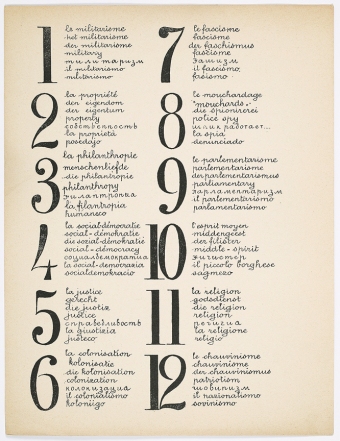 1
le militarisme
het militarisme
der militarisme
military
милитаризм
il militarismo
militarismo
2
la propriété
der eigendom
der eigentum
property
собственность
la proprietà
posedajo
3
la philanthropie
menschenliefde
die philanthropie
philanthropy
филантропия
la filantropia
humaneco
4
la social-démocratie
social-démokratie
die social-démokratie
social-démocracy
социальдемократия
la social-democrazia
socialdemokracio
5
la justice
gerecht
die justiz
justice
справедливость
la giustizia
justeco
6
la colonisation
kolonisatie
die kolonisation
colonization
колонизация
il colonialismo
koloniigo
7
le fascisme
fascisme
der faschismus
fascisme
фашизм
il fascismo
fasismo
8
le mouchardage
"mouchards"
die spionirerei
police spy
шпик работает...
la spia
denunciado
9
le parlementarisme
parlementarisme
der parlementarismus
parliamentary
парламентаризм
il parlementarismo
parlamentarismo
10
l'esprit moyen
middengeest
der filister
middle-spirit
фитистер
il piccolo borghese
sagmezo
11
la religion
godsdienst
die religion
religion
религия
la religione
religio
12
le chauvinisme
chauvinisme
der chauvinismus
patriotism
шовинизм
il nazionalismo
sovinismo